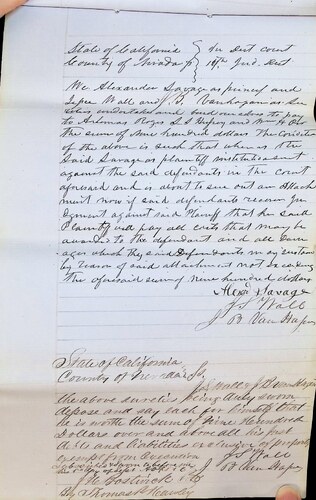 State of California } In Dist court
County of Nevada } 14th Jud. Dist
We Alexander Savage as principal and
Wall and J. B. Van hagan as Su
reties undertake and bind ourselves to pay
to Artemas Rogers
the sum of Nine hundred dollars The Condition
of the above is such that whereas the
said Savage as plaintiff institutes suit
against the said defendants in the court
aforesaid and is about to sue out an Attach
ment now if said defendants recover Ju
dgment against said Plaintiff that he said
Plaintiff will pay all costs that may be
awarded to the defendant and all dam
ages which they said Defendants may sustain
by reason of said attachment not exceeding
the aforesaid sum of nine hundred dollars
Alexr Savage
J S Wall
J B Van Hagan
State of California
County of Nevada Ss.
J S Wall & J B Van Hagan
the above sureties being duly sworn
depose and say each for himself that
he is worth the sum of Nine Hundred
Dollars over and above all his just
debts and liabilities exclusive of property
exempt from Execution
J S Wall
J B Van Hagan
By Thomas P. Hawley